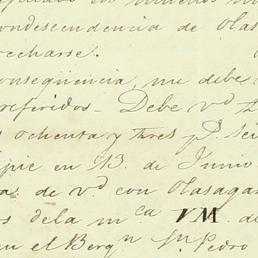 ondescendencia de Olas
recharse.
onseqüencia, me debe
referidos - Debe vd
s ochenta y tres ps
que en 13. de Junio
a. de vd. con Olasaga
os dela mca VM. de
en el Bergn Sn. Pedro